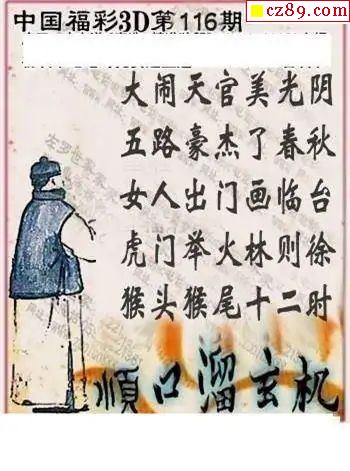 cz89.com
中国福彩3D第116期
大闹天官美光阴
五路豪杰了春秋
女人出门画临台
虎门举火林则徐
猴头猴尾十二时
順口溜玄机